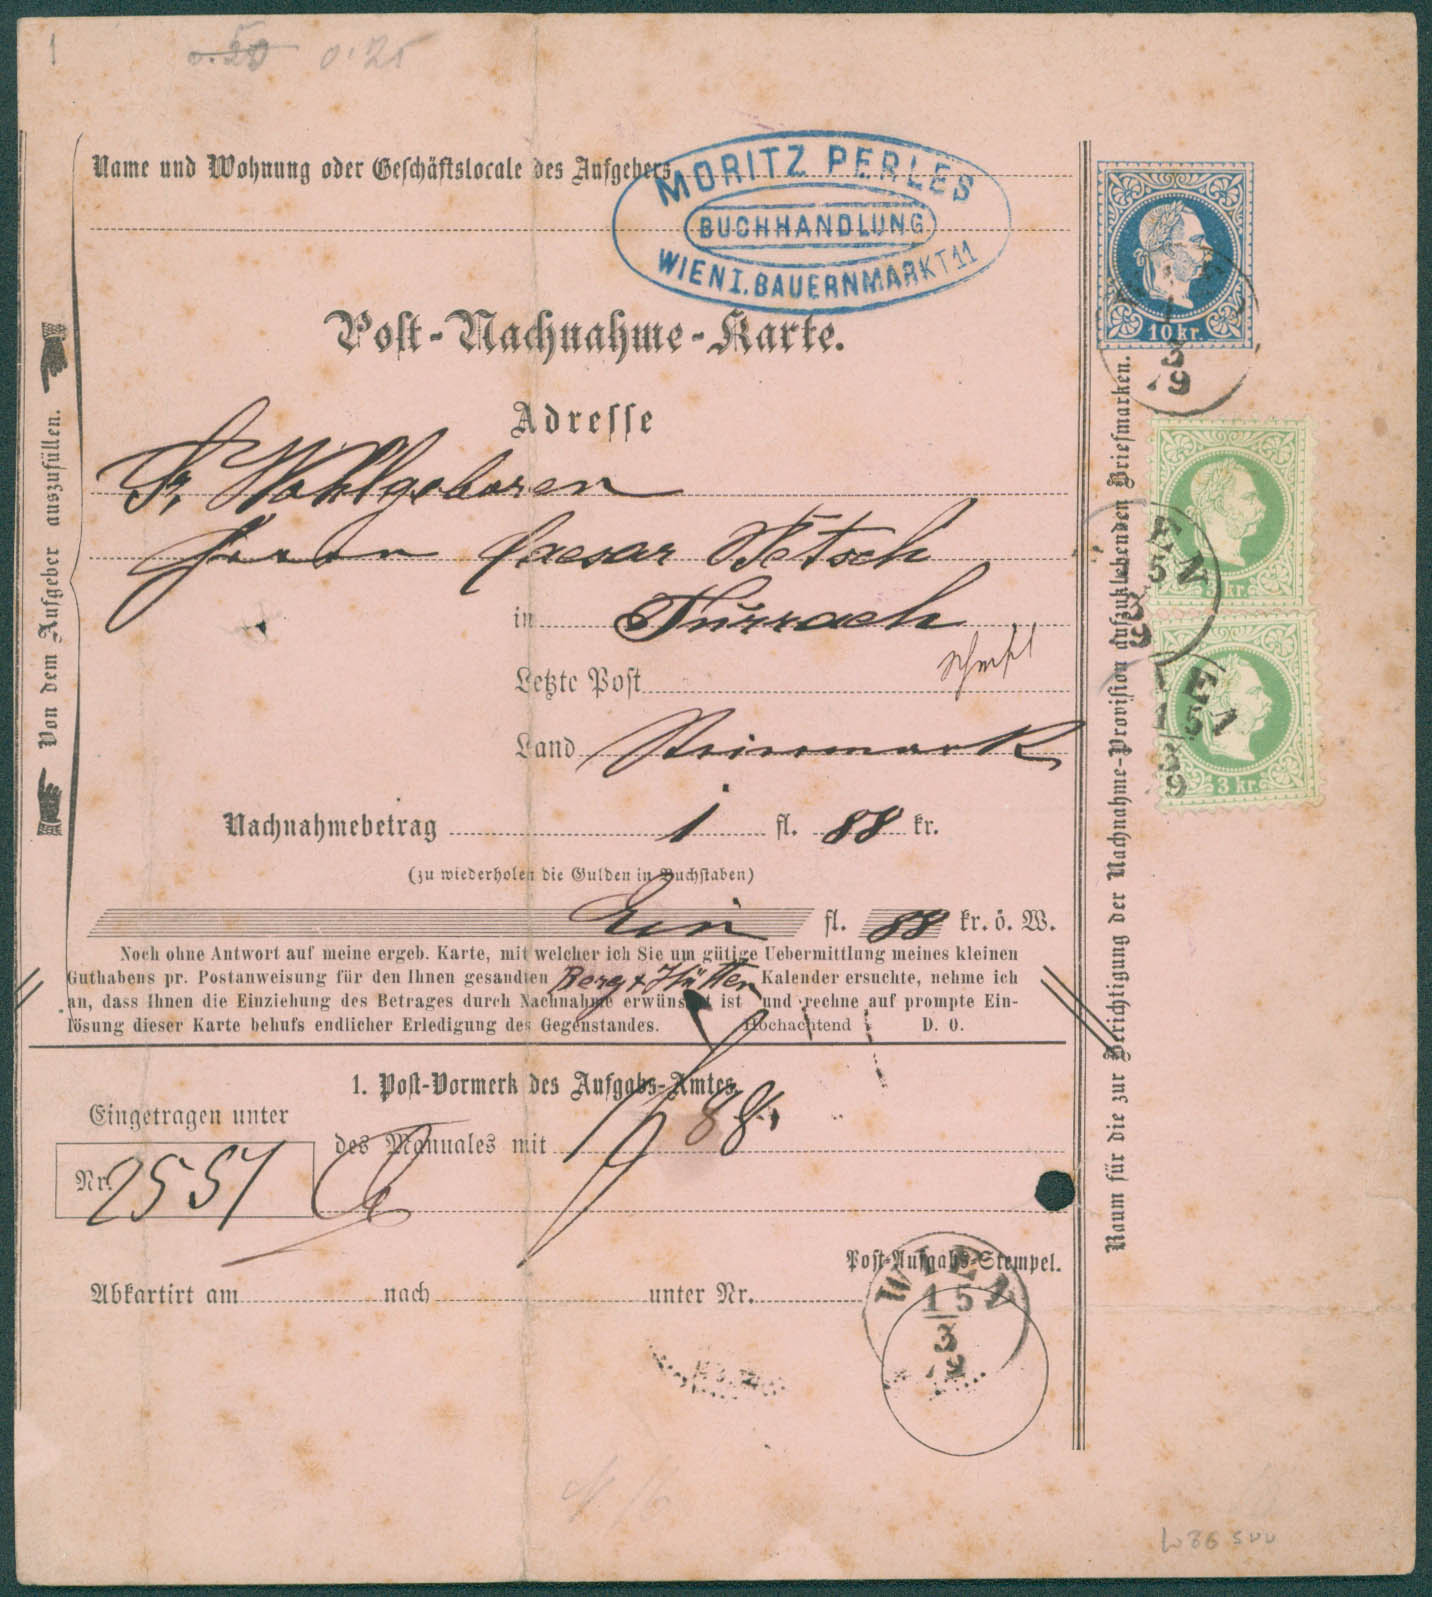 0.50 0.25
Name und Wohnung oder Geschäftslocale des Aufgebers
MORITZ PERLES
BUCHHANDLUNG
WIEN I. BAUERNMARKT 11
10 kr.
Post-Nachnahme-Karte.
Adresse
Sr. Wohlgeboren
Herrn Caesar Petsch
in Turrach
Letzte Post
Land Steiermark
Nachnahmebetrag 1 fl. 88 kr.
(zu wiederholen die Gulden in Buchstaben)
Ein fl. 88 kr. ö. W.
Noch ohne Antwort auf meine ergeb. Karte, mit welcher ich Sie um gütige Uebermittlung meines kleinen
Guthabens pr. Postanweisung für den Ihnen gesandten Berg & Hütten Kalender ersuchte, nehme ich
an, dass Ihnen die Einziehung des Betrages durch Nachnahme erwünscht ist und rechne auf prompte Ein-
lösung dieser Karte behufs endlicher Erledigung des Gegenstandes. Hochachtend D. O.
1. Post-Vormerk des Aufgabs-Amtes.
Eingetragen unter
des Manuales mit 1 f 88
Nr. 2551
Post-Aufgabs-Stempel.
Abkartirt am nach unter Nr.
WIEN
15
3
Von dem Aufgeber auszufüllen.
Raum für die zur Berichtigung der Nachnahme-Provision aufzuklebenden Briefmarken.
3 kr.
3 kr.